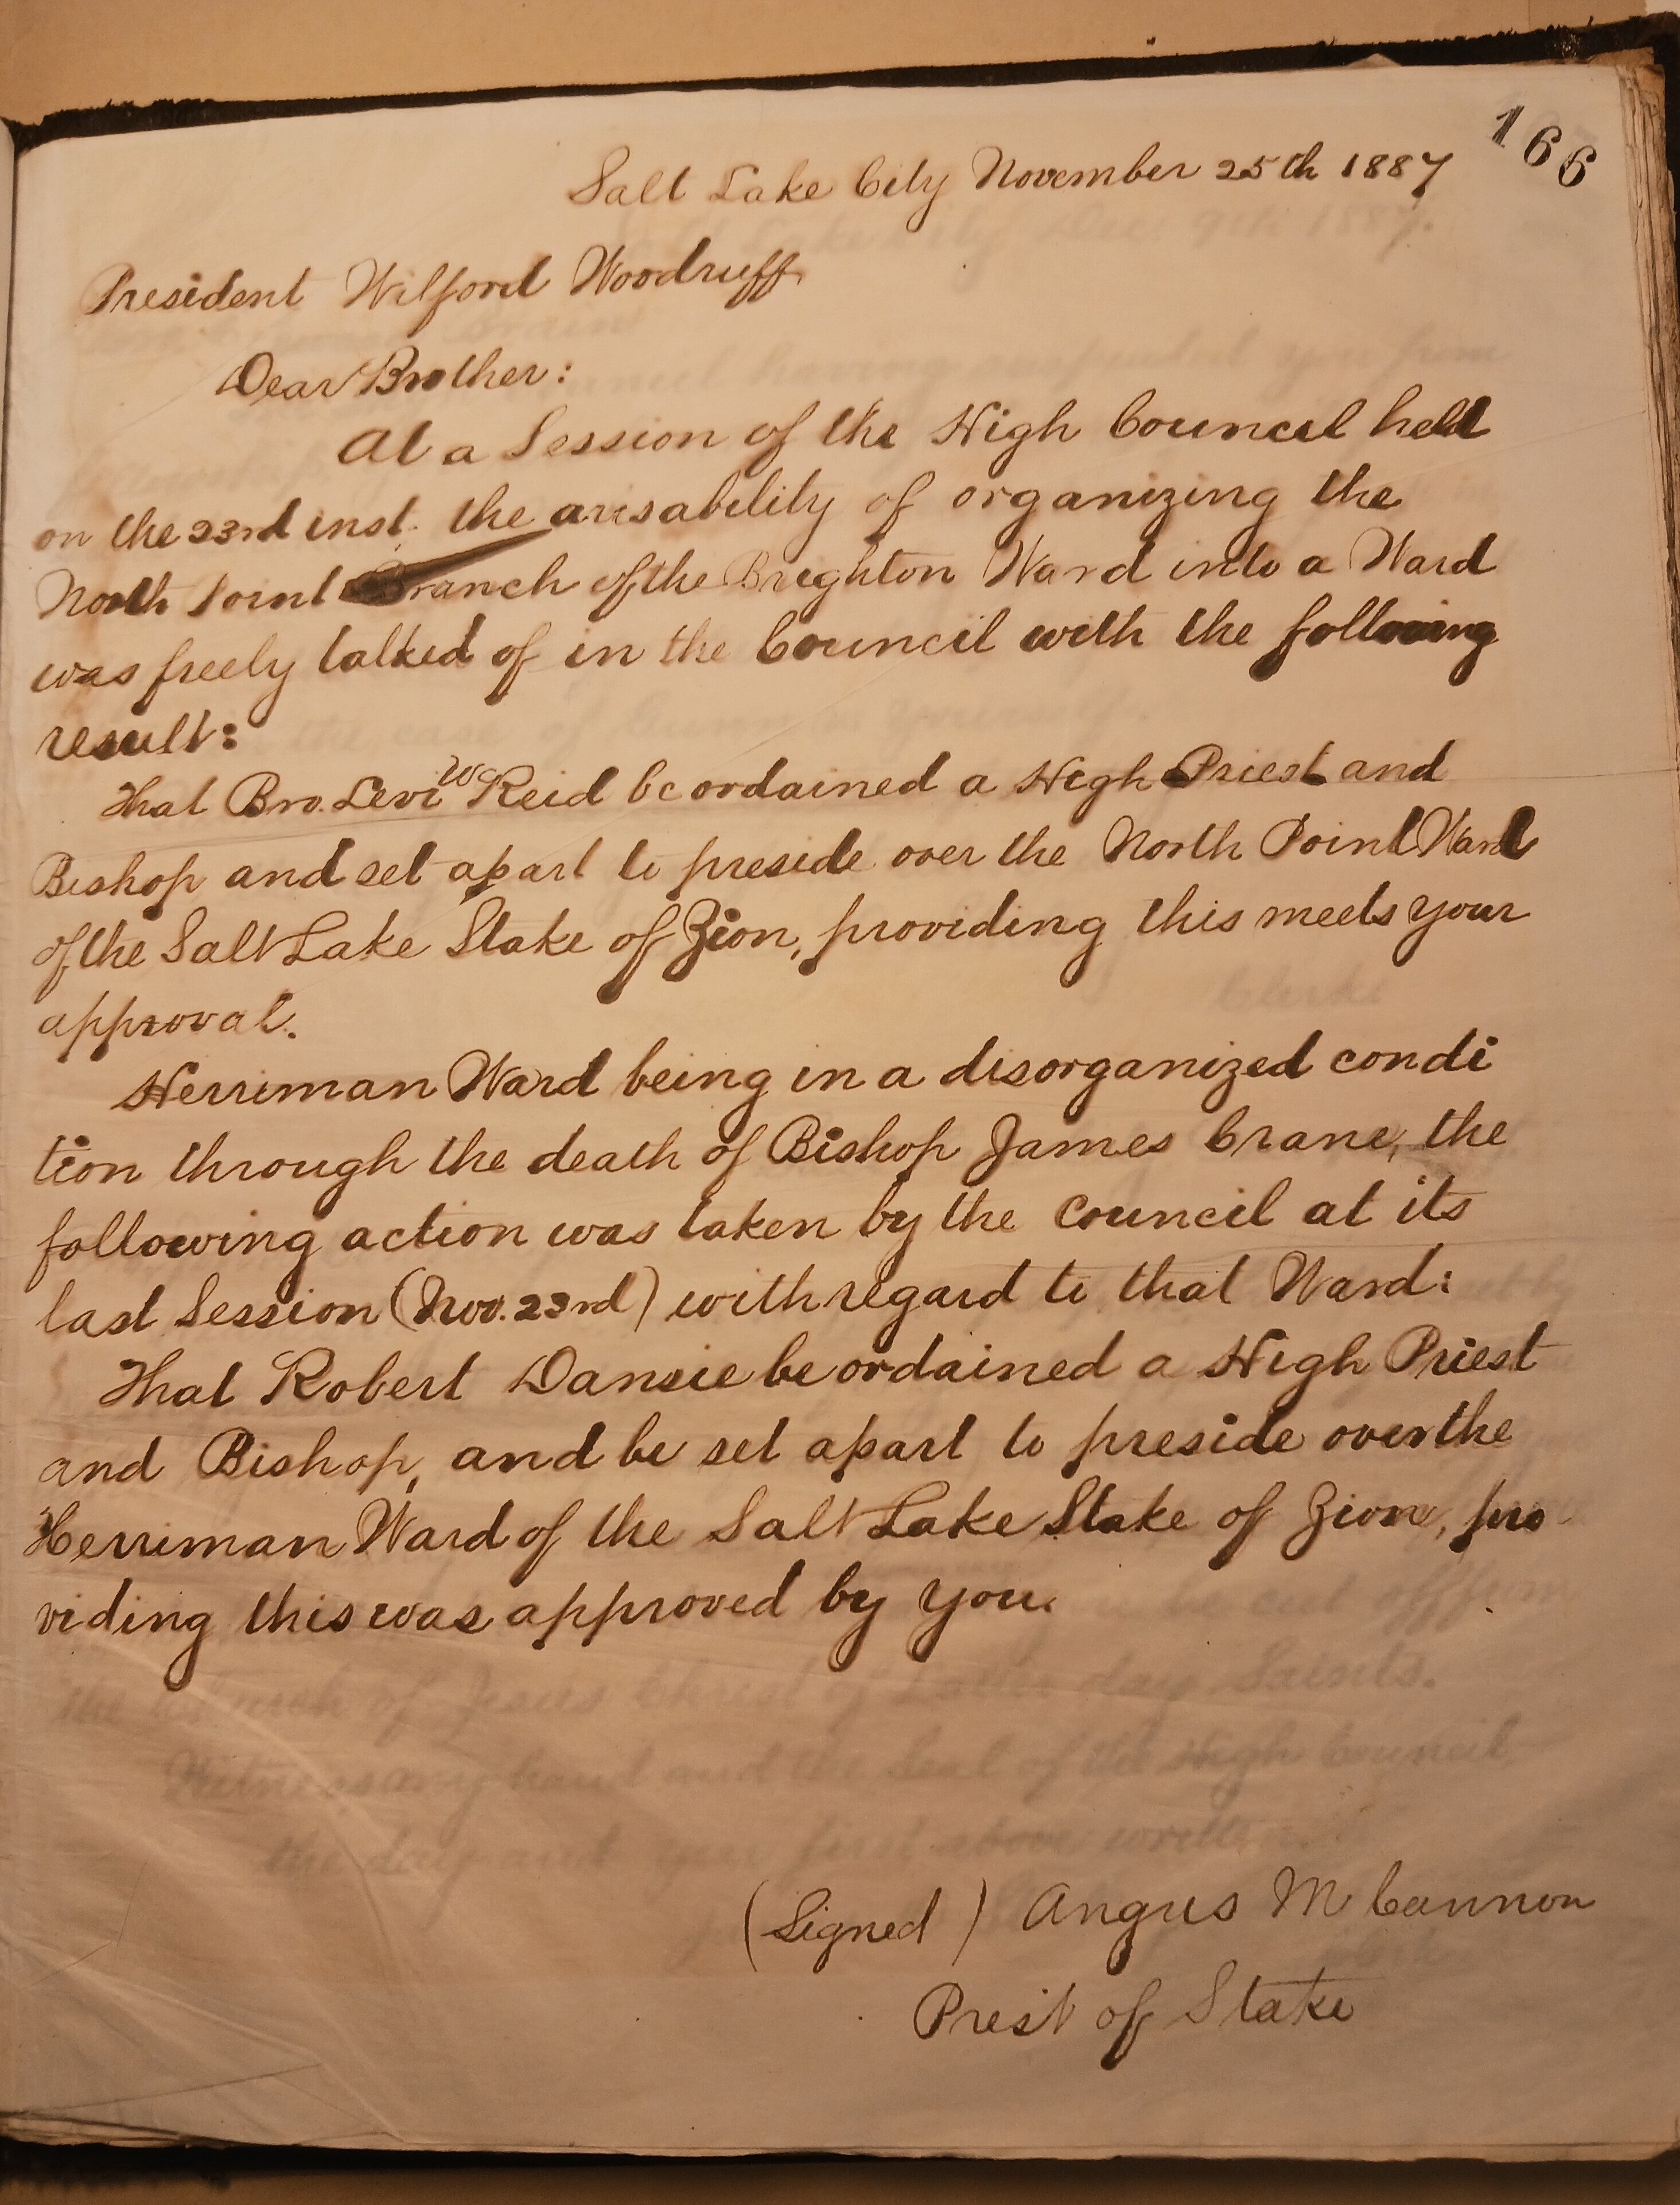 166
Salt Lake City November 25th 1887
President Wilford Woodruff
Dear Brother:
At a Session of the High Council held
on the 23rd inst. the arisability of organizing the
North Point Branch of the Brighton Ward into a Ward
was freely talked of in the Council with the following
result:
That Bro. Levi W Reid be ordained a High Priest and
Bishop and set apart to preside over the North Point Ward
of the Salt Lake Stake of Zion, providing this meets your
approval.
Herriman Ward being in a disorganized condi
tion through the death of Bishop James Crane, the
following action was taken by the Council at its
last Session (Nov. 23rd) with regard to that Ward:
That Robert Dansie be ordained a High Priest
and Bishop, and be set apart to preside over the
Herriman Ward of the Salt Lake Stake of Zion, pro
viding this was approved by you.
the Church of Jesus Christ of Latter day Saints.
Witness my hand and the Seal of the High Council
the day and year first above written.
(Signed) Angus M Cannon
Prest of Stake